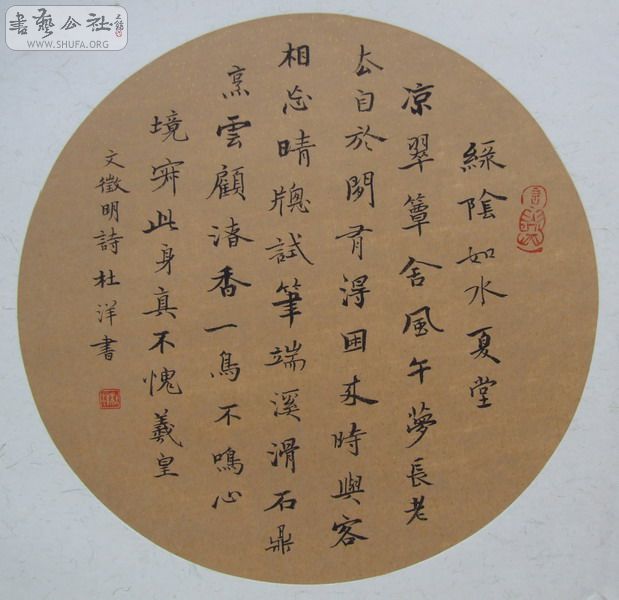 書藝公社
WWW.SHUFA.ORG
綠陰如水夏堂
凉翠簟含風午夢長老
去自於閑有得困來時與客
相忘晴牕試筆端溪滑石鼎
烹雲顧渚香一鳥不鳴心
境寂此身真不愧羲皇
文徵明詩杜洋書